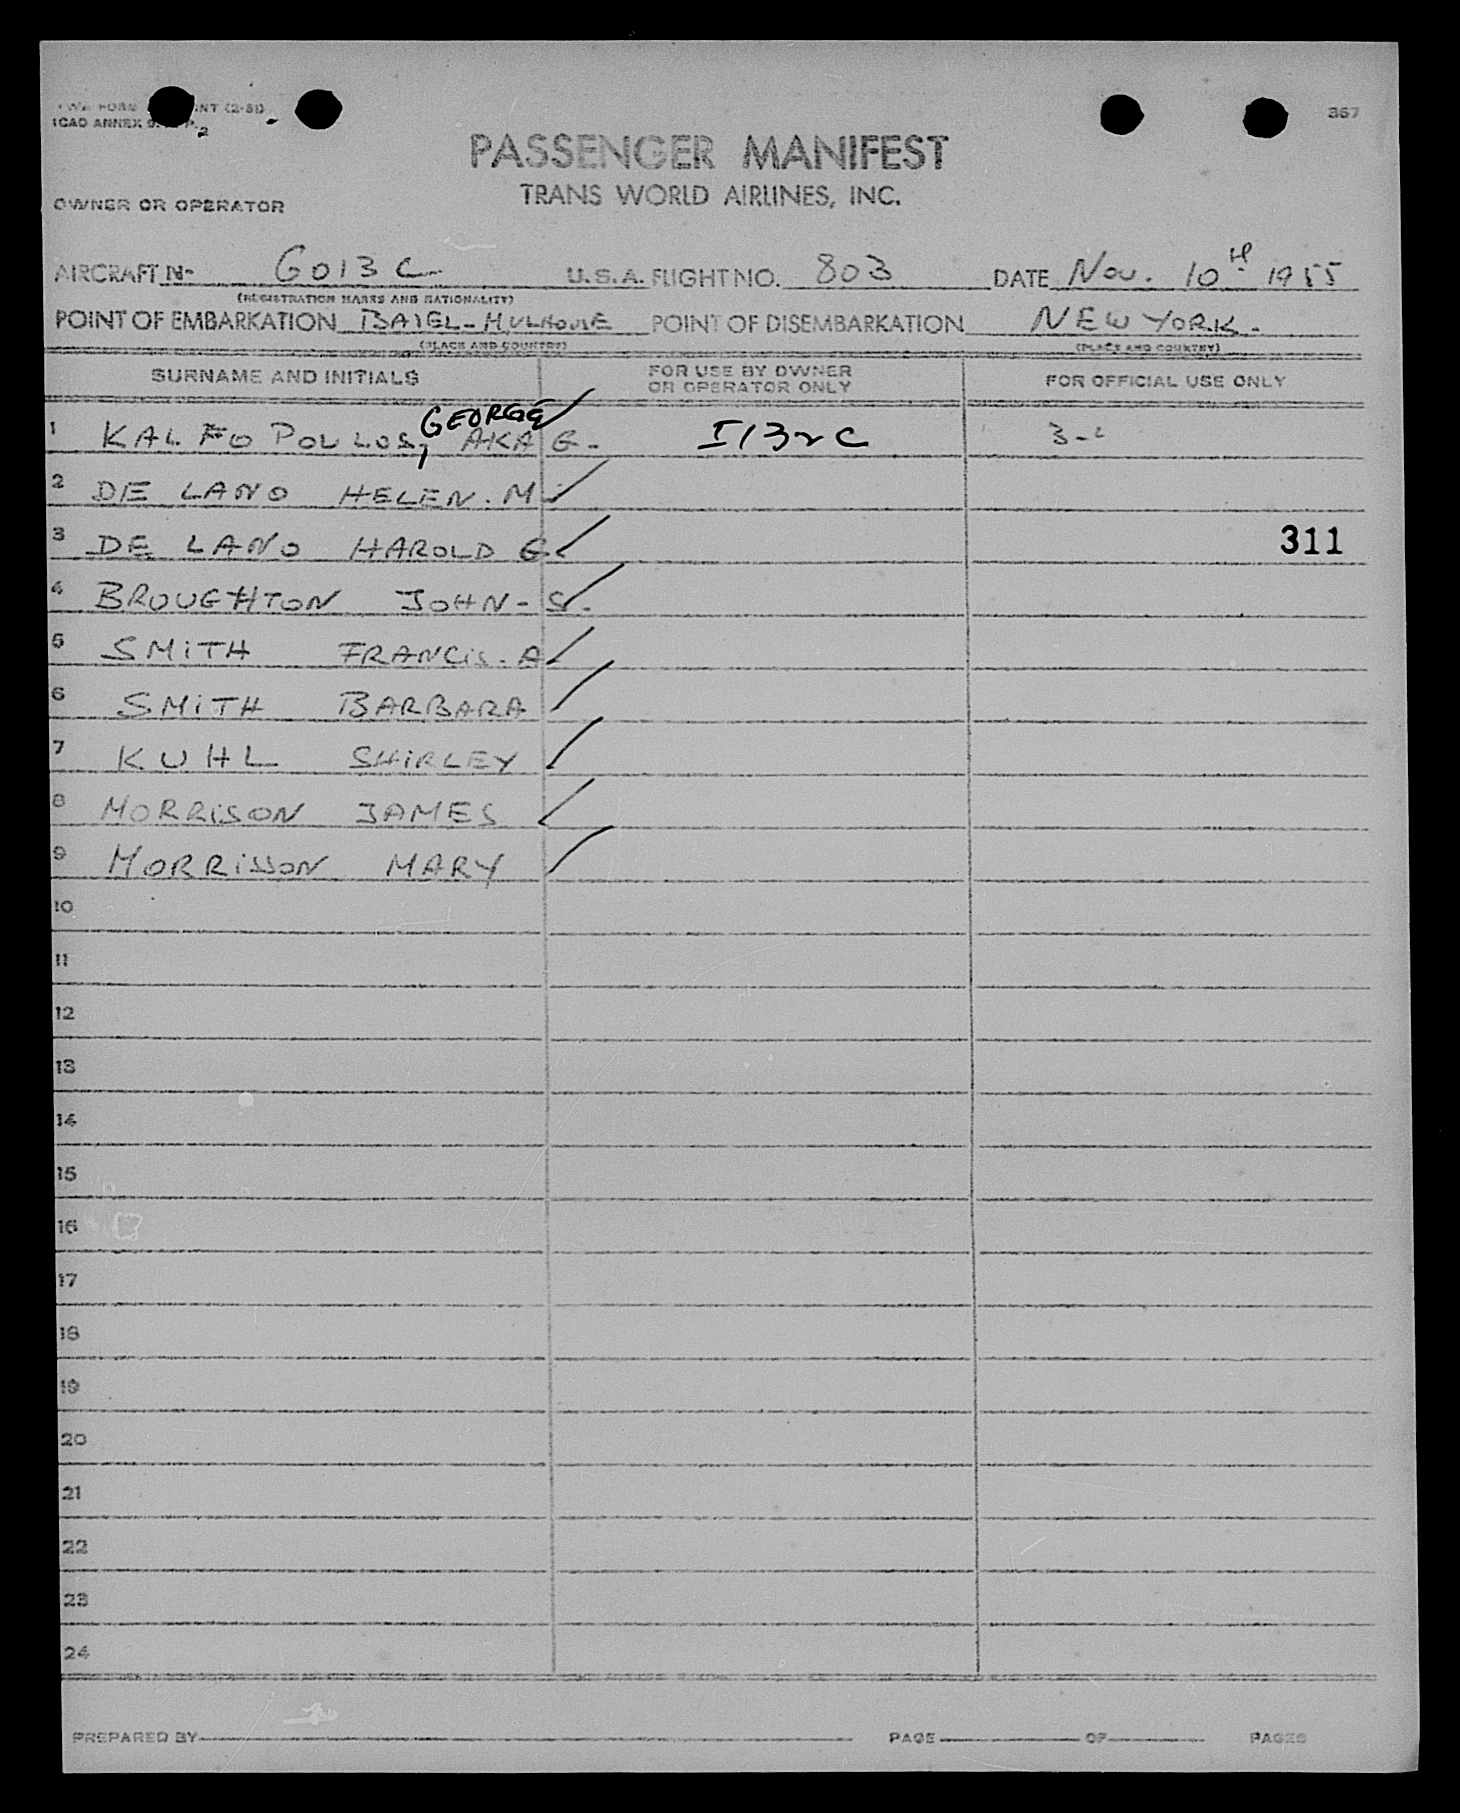 TWA FORM INT (2-51)
ICAO ANNEX 9.
2
367
PASSENGER MANIFEST
TRANS WORLD AIRLINES, INC.
OWNER OR OPERATOR
AIRCRAFT N- 6013 C U.S.A. FLIGHT NO. 803 DATE Nov. 10th 1955
(REGISTRATION MARKS AND NATIONALITY)
POINT OF EMBARKATION BASEL-MULHOUSE POINT OF DISEMBARKATION NEW YORK.
(PLACE AND COUNTRY) (PLACE AND COUNTRY)
SURNAME AND INITIALS FOR USE BY OWNER OR OPERATOR ONLY FOR OFFICIAL USE ONLY
GEORGE
1 KALFOPOULOS, AKA G. I132C 3-2
2 DE LANO HELEN.M
3 DE LANO HAROLD G. 311
4 BROUGHTON JOHN-S.
5 SMITH FRANCIS.A
6 SMITH BARBARA
7 KUHL SHIRLEY
8 MORRISON JAMES
9 MORRISSON MARY
10
11
12
13
14
15
16
17
18
19
20
21
22
23
24
PREPARED BY PAGE OF PAGES